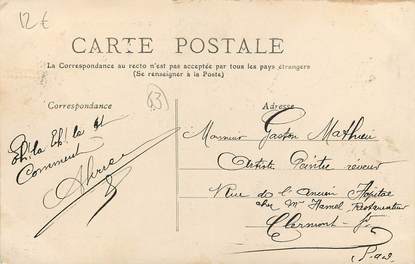 12€
CARTE POSTALE
La Correspondance au recto n'est pas acceptée par tous les pays étrangers
(Se renseigner à la Poste)
Correspondance
63
Adresse
Eh! la Eh! la
Comment
Monsieur Gaston Mathieu
Artiste Peintre rêveur
Rue de l'ancien Hôpital
chez Mr Hamel Restaurateur
Clermont-Fd
P. de D.